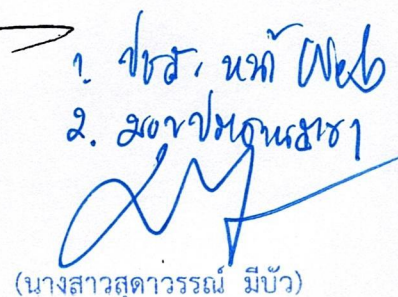 1. ปชส. หน้า Web
2. มอบ
(นางสาวสุดาวรรณ์ มีบัว)